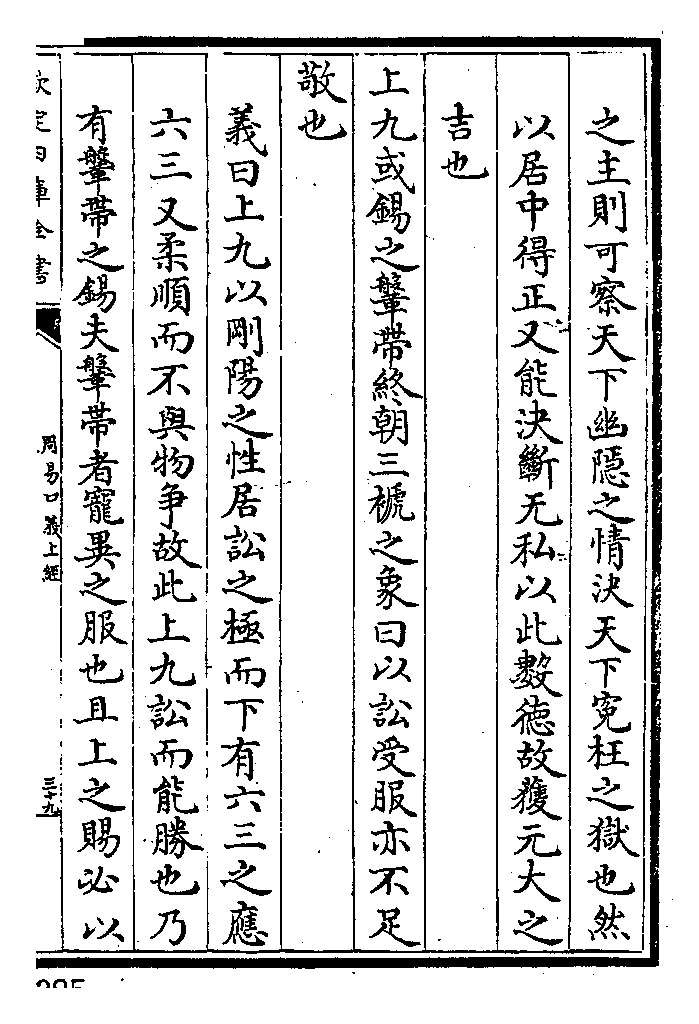 之主則可察天下幽隱之情決天下寃枉之獄也然
以居中得正又能決斷无私以此數徳故獲元大之
吉也
上九或錫之鞶帶終朝三褫之象曰以訟受服亦不足
敬也
義曰上九以剛陽之性居訟之極而下有六三之應
六三又柔順而不與物爭故此上九訟而能勝也乃
有鞶帶之錫夫鞶帶者寵異之服也且上之賜必以
欽定四庫全書
周易口義上經
三十九